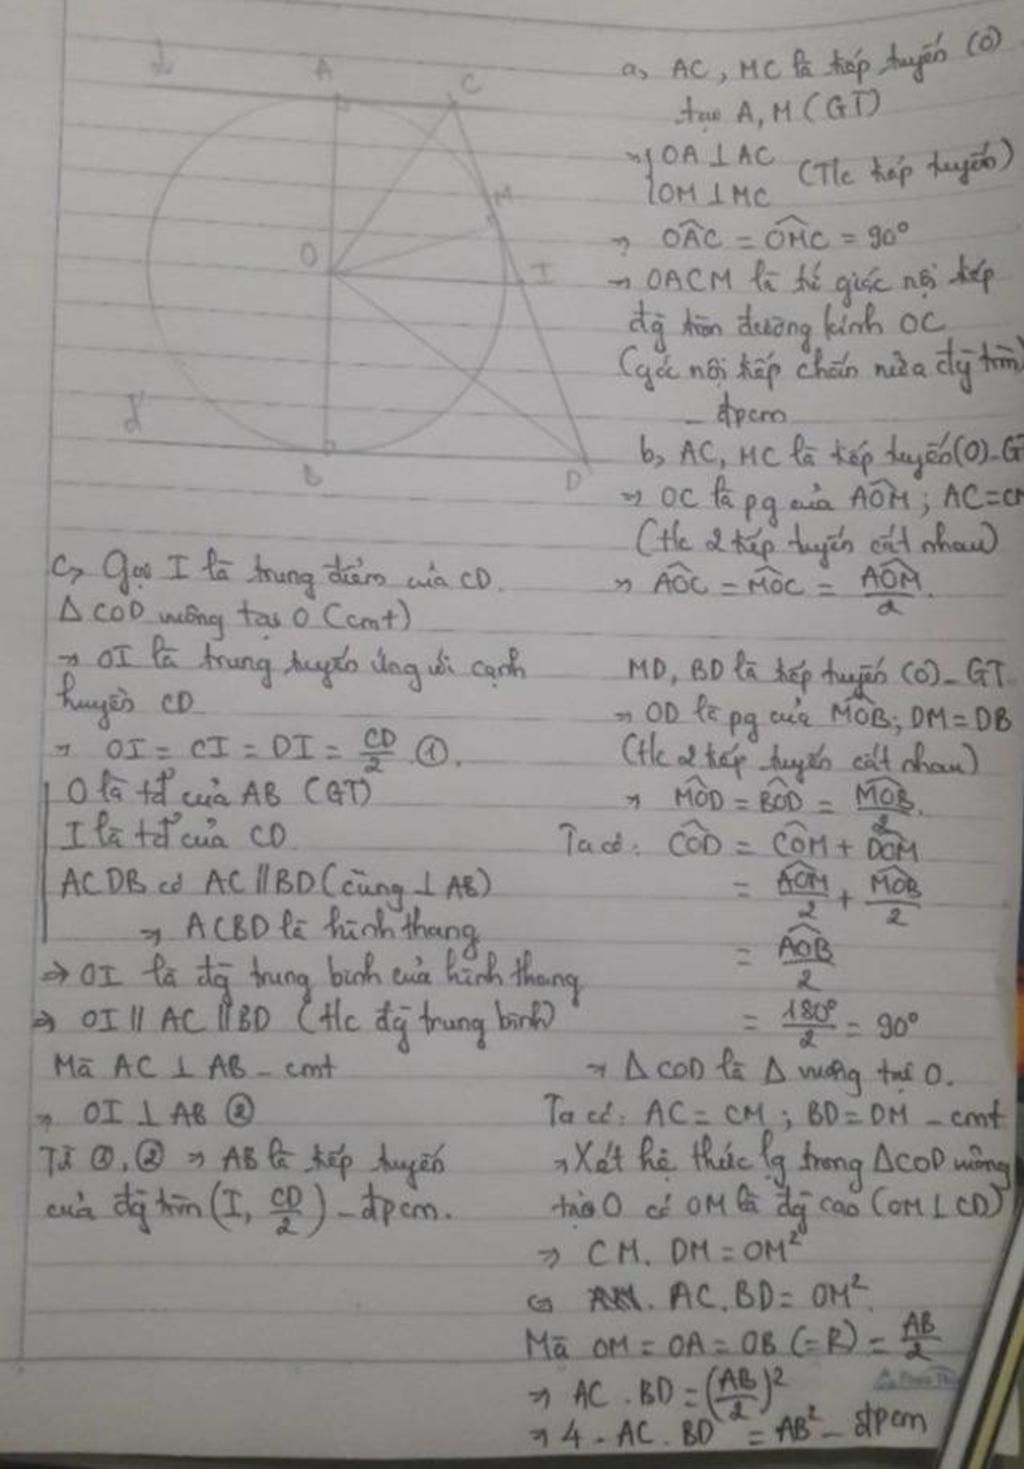 d
A
C
M
O
I
d'
B
D
a, AC, MC là tiếp tuyến (O)
tại A, M (GT)
→ { OA ⊥ AC
OM ⊥ MC (T/c tiếp tuyến)
→ OAC = OMC = 90°
→ OACM là tứ giác nội tiếp
đg tròn đường kính OC
(góc nội tiếp chắn nửa đg tròn)
_ đpcm
b, AC, MC là tiếp tuyến (O) - G
→ OC là pg của AOM ; AC = CM
(t/c 2 tiếp tuyến cắt nhau)
→ AOC = MOC = AOM/2.
MD, BD là tiếp tuyến (O) - GT
→ OD là pg của MOB; DM = DB
(t/c 2 tiếp tuyến cắt nhau)
→ MOD = BOD = MOB/2.
Ta có: COD = COM + DOM
= AOM/2 + MOB/2
= AOB/2
= 180°/2 = 90°
→ Δ COD là Δ vuông tại O.
Ta có: AC = CM ; BD = DM - cmt
→ Xét hệ thức lg trong ΔCOD vuông
tại O có OM là đg cao (OM ⊥ CD)
→ CM. DM = OM²
AC. BD = OM²
Mà OM = OA = OB (= R) = AB/2
→ AC . BD = (AB/2)²
→ 4 . AC. BD = AB² - đpcm
c, Gọi I là trung điểm của CD.
Δ COD vuông tại O (cmt)
→ OI là trung tuyến ứng với cạnh
huyền CD
→ OI = CI = DI = CD/2 ①.
O là tđ của AB (GT)
I là tđ của CD
ACDB có AC // BD (cùng ⊥ AB)
→ ACBD là hình thang
⇒ OI là đg trung bình của hình thang
⇒ OI // AC // BD (t/c đg trung bình)
Mà AC ⊥ AB - cmt
→ OI ⊥ AB ②
Từ ①, ② → AB là tiếp tuyến
của đg tròn (I, CD/2) - đpcm.